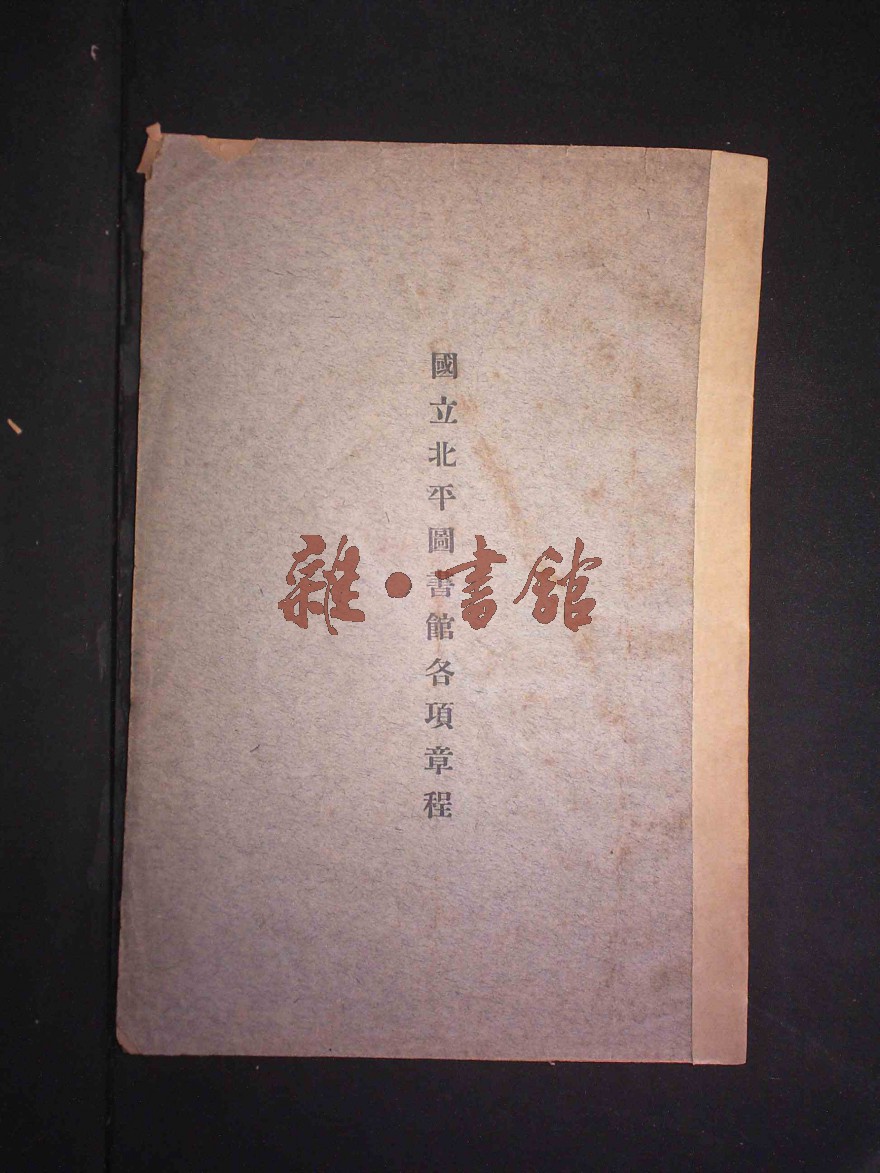 國立北平圖書館各項章程
雜·書舘